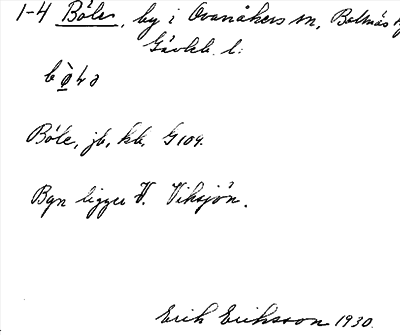 1-4 Böle, by i Ovanåkers sn, Bollnäs
Gävleb. l:
Böle, jb, kb, G 109.
Byn ligger V. Viksjön.
Erik Eriksson 1930.